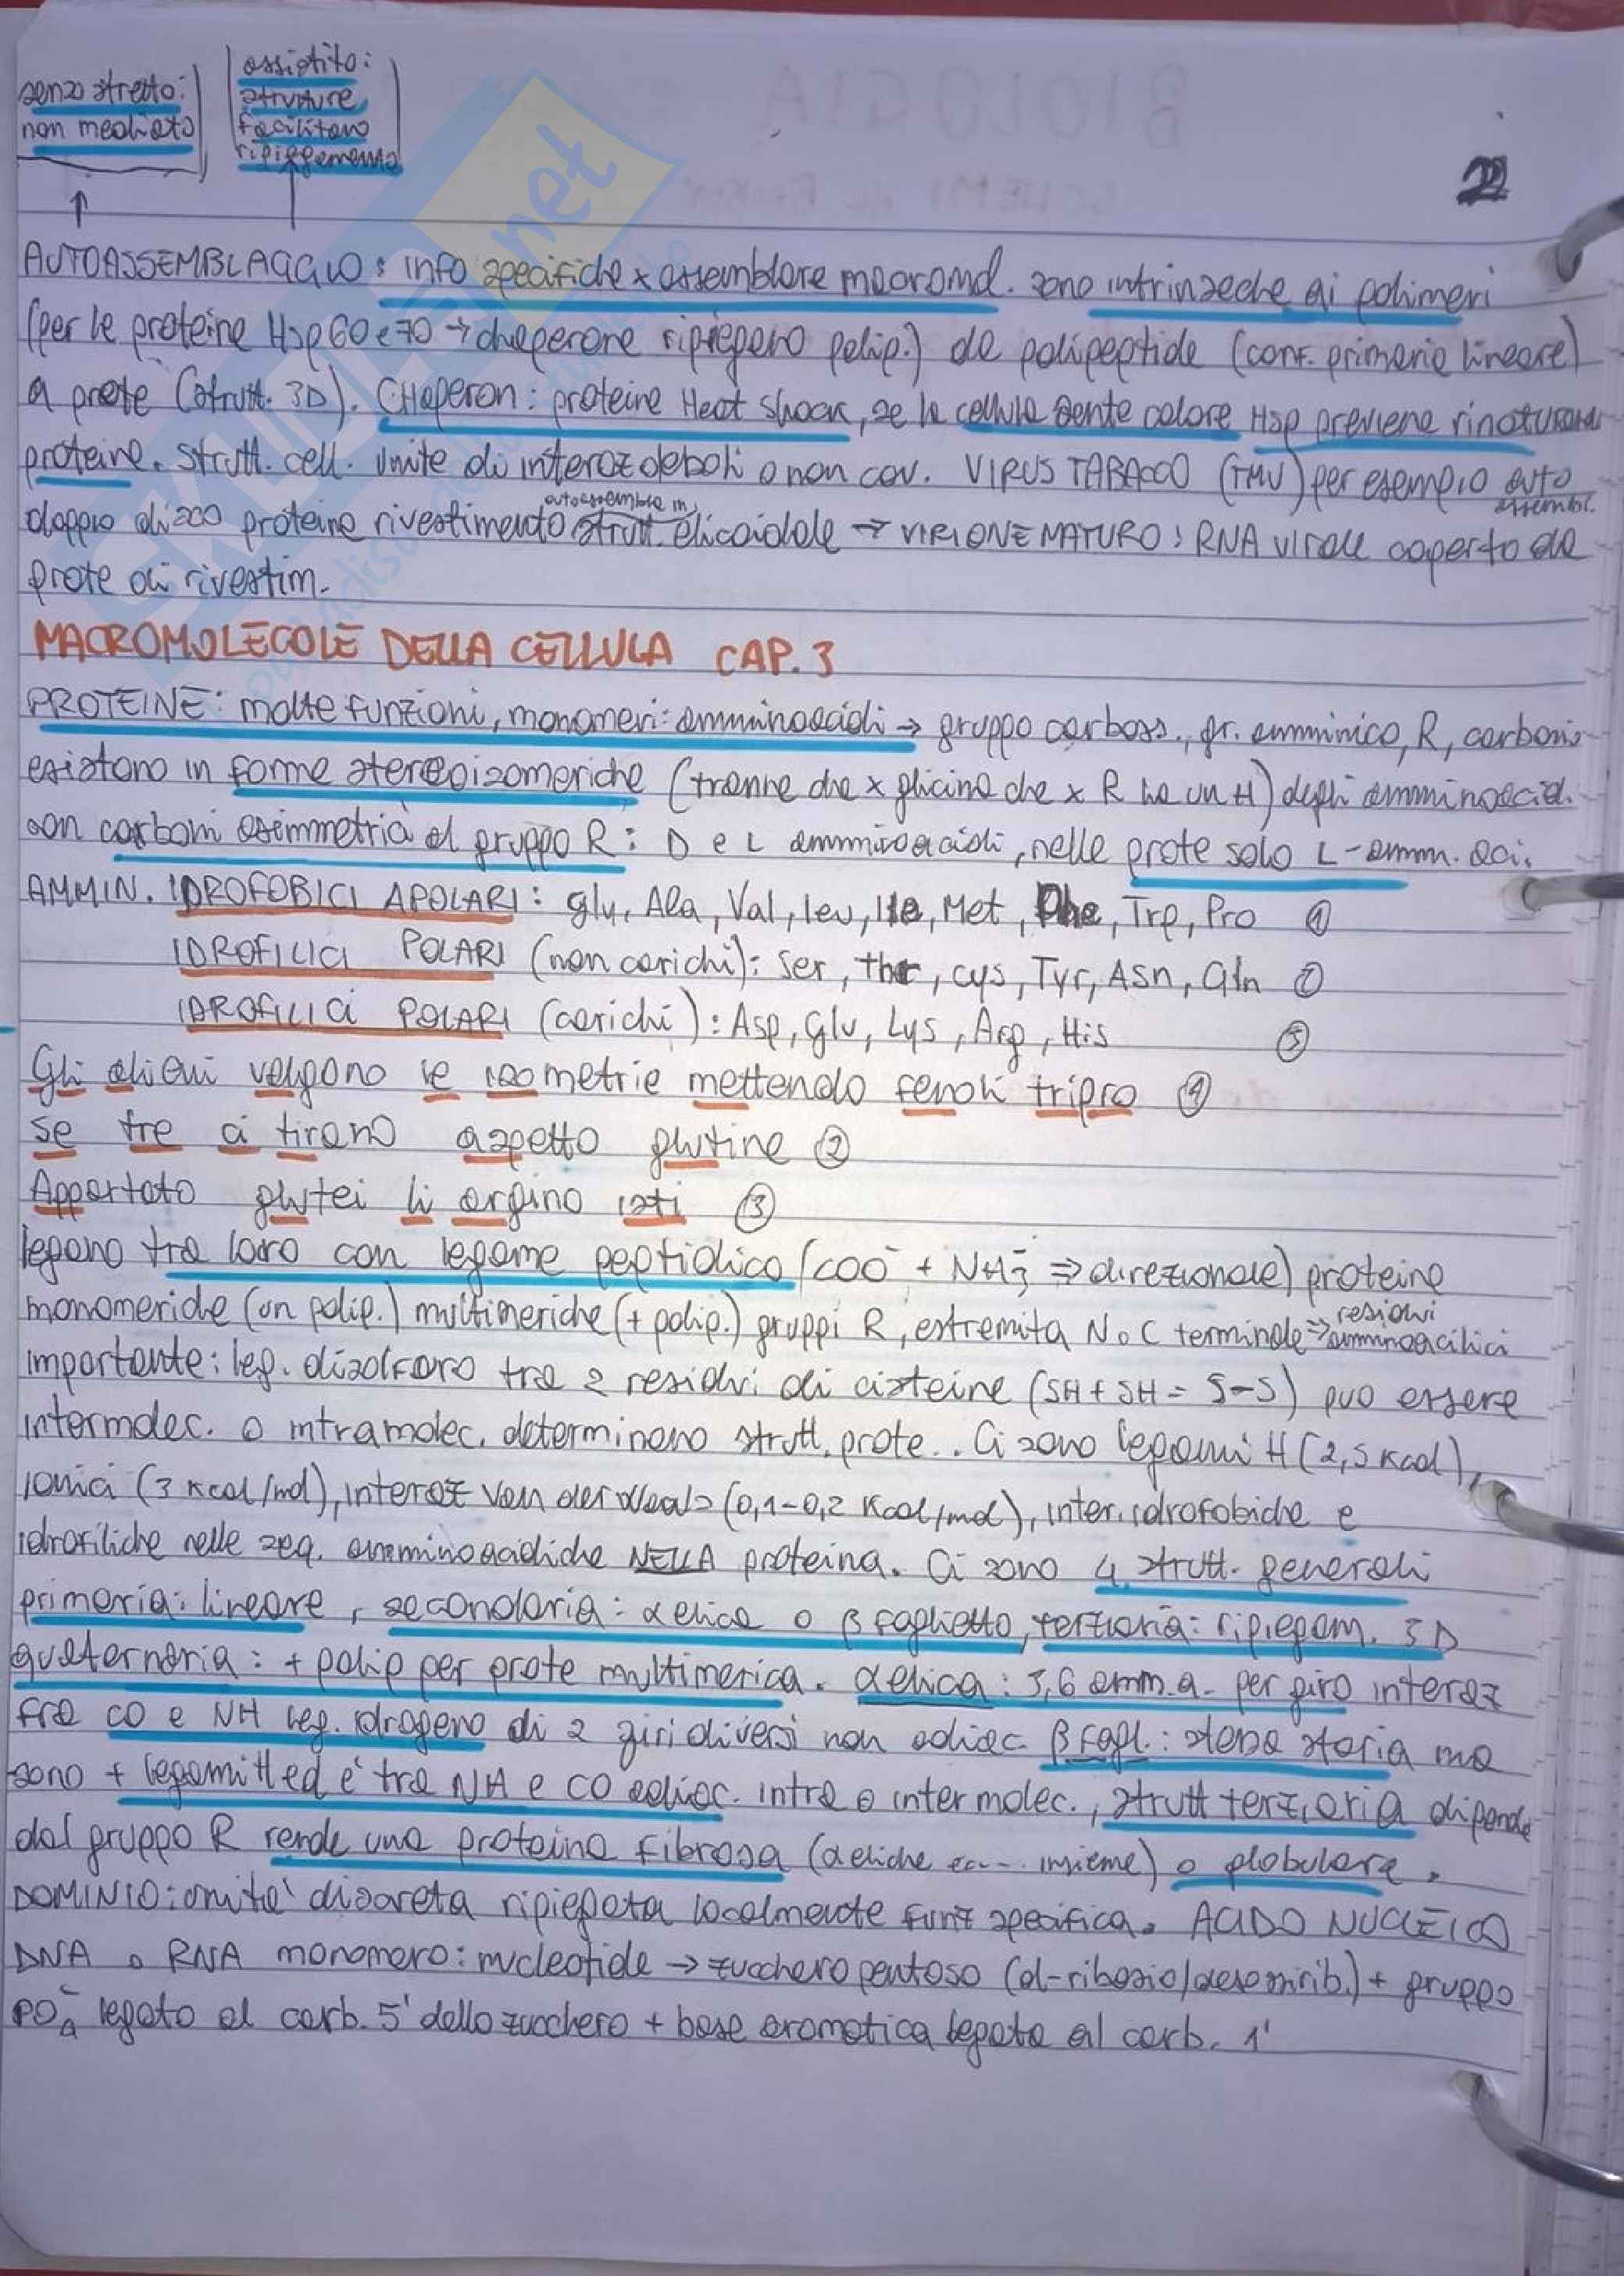 senso stretto:
non mediato
assistito:
strutture
facilitano
ripiegamento
22
AUTOASSEMBLAGGIO: info specifiche x assemblare macromol. sono intrinseche ai polimeri
(per le proteine Hsp60 e 70 → chaperone ripiegano polip.) da polipeptide (conf. primaria lineare)
a prote (strutt. 3D). CHaperon: proteine Heat shock, se la cellula sente calore Hsp previene rinaturano
proteine. Strutt. cell. unite di interaz deboli o non cov. VIRUS TABACCO (TMV) per esempio auto
assembl.
autoassembla in
doppio disco proteine rivestimento strutt. elicoidale → VIRIONE MATURO: RNA virale coperto da
prote di rivestim.
MACROMOLECOLE DELLA CELLULA CAP. 3
PROTEINE: molte funzioni, monomeri: amminoacidi → gruppo carboss., gr. amminico, R, carbonio
esistono in forme stereoisomeriche (tranne che x glicina che x R ha un H) degli amminoacid.
son carboni asimmetria al gruppo R: D e L amminoacidi, nelle prote solo L-amm. aci.
AMMIN. IDROFOBICI APOLARI: Gly, Ala, Val, Leu, Ile, Met, Phe, Trp, Pro ①
IDROFILICI POLARI (non carichi): Ser, thr, cys, Tyr, Asn, Gln ②
IDROFILICI POLARI (carichi): Asp, Glu, Lys, Arg, His ③
Gli alieni valgono le isometrie mettendo fenoli tripro ①
se tre ci tirano aspetto glutine ②
Appartato glutei li argino isti ③
legano tra loro con legame peptidico (COO⁻ + NH₃⁻ ⇒ direzionale) proteine
monomeriche (un polip.) multimeriche (+ polip.) gruppi R, estremita N o C terminale ⇒ residui
amminoacilici
importante: leg. disolfuro tra 2 residui di cisteine (SH + SH = S-S) puo essere
intermolec. o intramolec. determinano strutt. prote.. Ci sono legami H (2,5 Kcal),
ionici (3 Kcal/mol), interaz Van der Waals (0,1-0,2 Kcal/mol), inter. idrofobiche e
idrofiliche nelle seq. amminoacidiche NELLA proteina. Ci sono 4 strutt. generali
primaria: lineare, secondaria: α elica o β foglietto, terziaria: ripiegam. 3D
quaternaria: + polip per prote multimerica. α elica: 3,6 amm.a. per giro interaz
fra CO e NH leg. idrogeno di 2 giri diversi non adiac β fogl.: stessa storia ma
sono + legami H ed è tra NH e CO adiac. intra o inter molec., strutt terziaria dipende
dal gruppo R rende una proteina fibrosa (α eliche insieme) o globulare.
DOMINIO: unità discreta ripiegata localmente funz specifica. ACIDO NUCLEICO
DNA o RNA monomero: nucleotide → zucchero pentoso (d-ribosio/desossirib.) + gruppo
PO₄⁻ legato al carb. 5' dello zucchero + base aromatica legata al carb. 1'